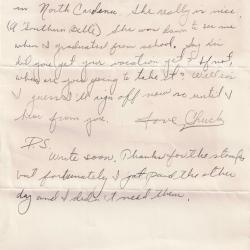 in North Carolina. She really is nice
(A Southern Belle) She was down to see me
when I graduated from school. Say Sis
did you get your vacation yet? If not,
when are you going to take it?
I guess I'll sign off now so until I
hear from you. Love Chuck
P.S.
Write soon, Thanks for the stamps
but fortunately I got paid the other
day and I didn't need them.